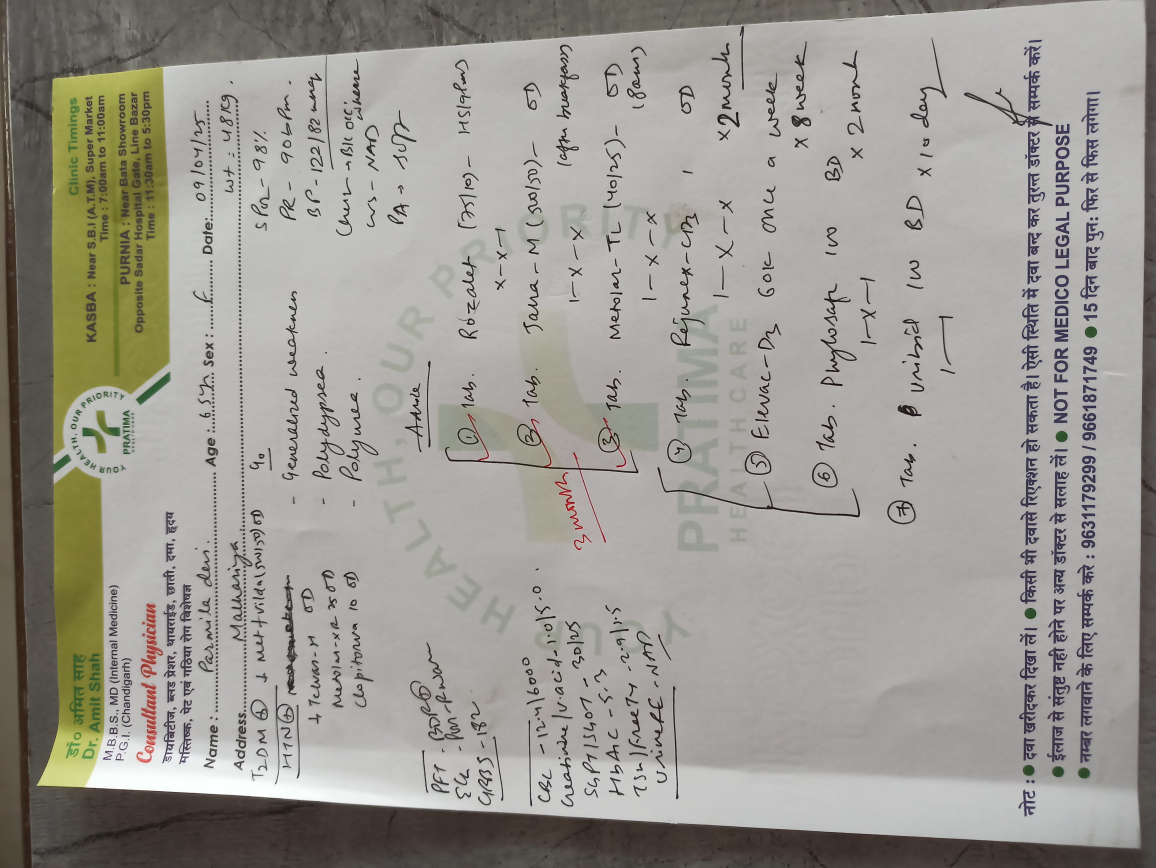 डॉ० अमित साह
Dr. Amit Shah
M.B.B.S., MD (Internal Medicine)
P.G.I. (Chandigarh)
Consultant Physician
डायबिटीज, ब्लड प्रेशर, थायराईड, छाती, दमा, हृदय
मस्तिष्क, पेट एवं गठिया रोग विशेषज्ञ
YOUR HEALTH, OUR PRIORITY
PRATIMA
HEALTH CARE
Clinic Timings
KASBA : Near S.B.I (A.T.M), Super Market
Time : 7:00am to 11:00am
PURNIA : Near Bata Showroom
Opposite Sadar Hospital Gate, Line Bazar
Time : 11:30am to 5:30pm
Name : Parmila devi Age : 65 yr Sex : F Date: 09/04/25
Address Malhariya wt : 48 kg.
T2DM ⊕ ↓ Met + vilda (500/50) OD
HTN ⊕
+ Telvas-H OD
Metolar-XR 25 OD
Clopitorva 10 OD
- Generalized weakness
- Polydypsea.
- Polyurea.
SPO2 - 98%
PR - 90 bpm.
BP - 122/82 mmHg
CNS - NAD
PA → soft
PFT -
ECG -
GRBS - 182
CBC - 12.4/6000
Creatinine/U.acid - 1.0/5.0.
SGPT/SGOT - 30/25
HbA1C - 5.3
TSH/freeT4 - 2.9/1.5
Urine RE - NAD
Advice
① Tab. Rozalet (75/10) - HS (9pm)
x-x-1
② Tab. Janra-M (500/50) - OD
1-x-x (after breakfast)
③ Tab. Metolar-TL (40/25) - OD
1-x-x (8am)
3 month
④ Tab. Rejunex-CD3 1 OD
1-x-x x 2 month
⑤ Elevac-D3 60K once a week
x 8 week
⑥ Tab. Phylosafe 100 BD
1-x-1 x 2 month
⑦ Tab. Unibid 100 BD x 10 day
1—1
YOUR HEALTH, OUR PRIORITY
PRATIMA
HEALTH CARE
नोट : ● दवा खरीदकर दिखा लें। ● किसी भी दवासे रिएक्शन हो सकता है। ऐसी स्थिति में दवा बन्द कर तुरन्त डॉक्टर से सम्पर्क करें।
● ईलाज से संतुष्ट नही होने पर अन्य डॉक्टर से सलाह लें। ● NOT FOR MEDICO LEGAL PURPOSE
● नम्बर लगवाने के लिए सम्पर्क करे : 9631179299 / 9661871749 ● 15 दिन बाद पुन: फिर से फिस लगेगा।